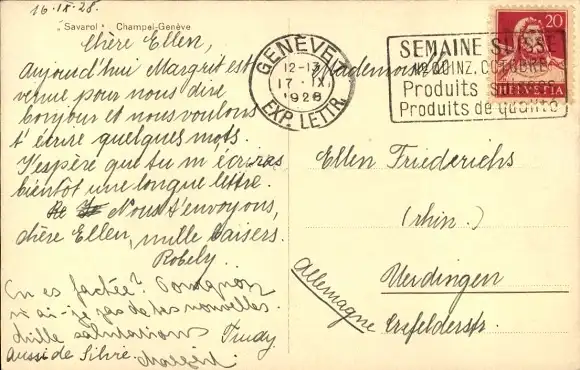 16.IX.28.
Savarol • Champel-Genève
Chère Ellen,
Aujourd'hui Margrit est
venue pour nous dire
bonjour et nous voulons
t'écrire quelques mots.
J'espère que tu m'écriras
bientôt une longue lettre.
Nous t'envoyons,
chère Ellen, mille baisers.
Robely.
En es fachée? Pourquoi
n'ai-je pas de tes nouvelles.
Mille salutations Trudy
Aussi de Silvie. Margrit.
GENÈVE 1
12-13
17.IX
1928
EXP. LETTR.
SEMAINE SUISSE
OCTOBRE
Produits suisses
Produits de qualité
20
HELVETIA
Mademoiselle
Ellen Friederichs
(rhin.)
Uerdingen
Crefelderstr.
Allemagne